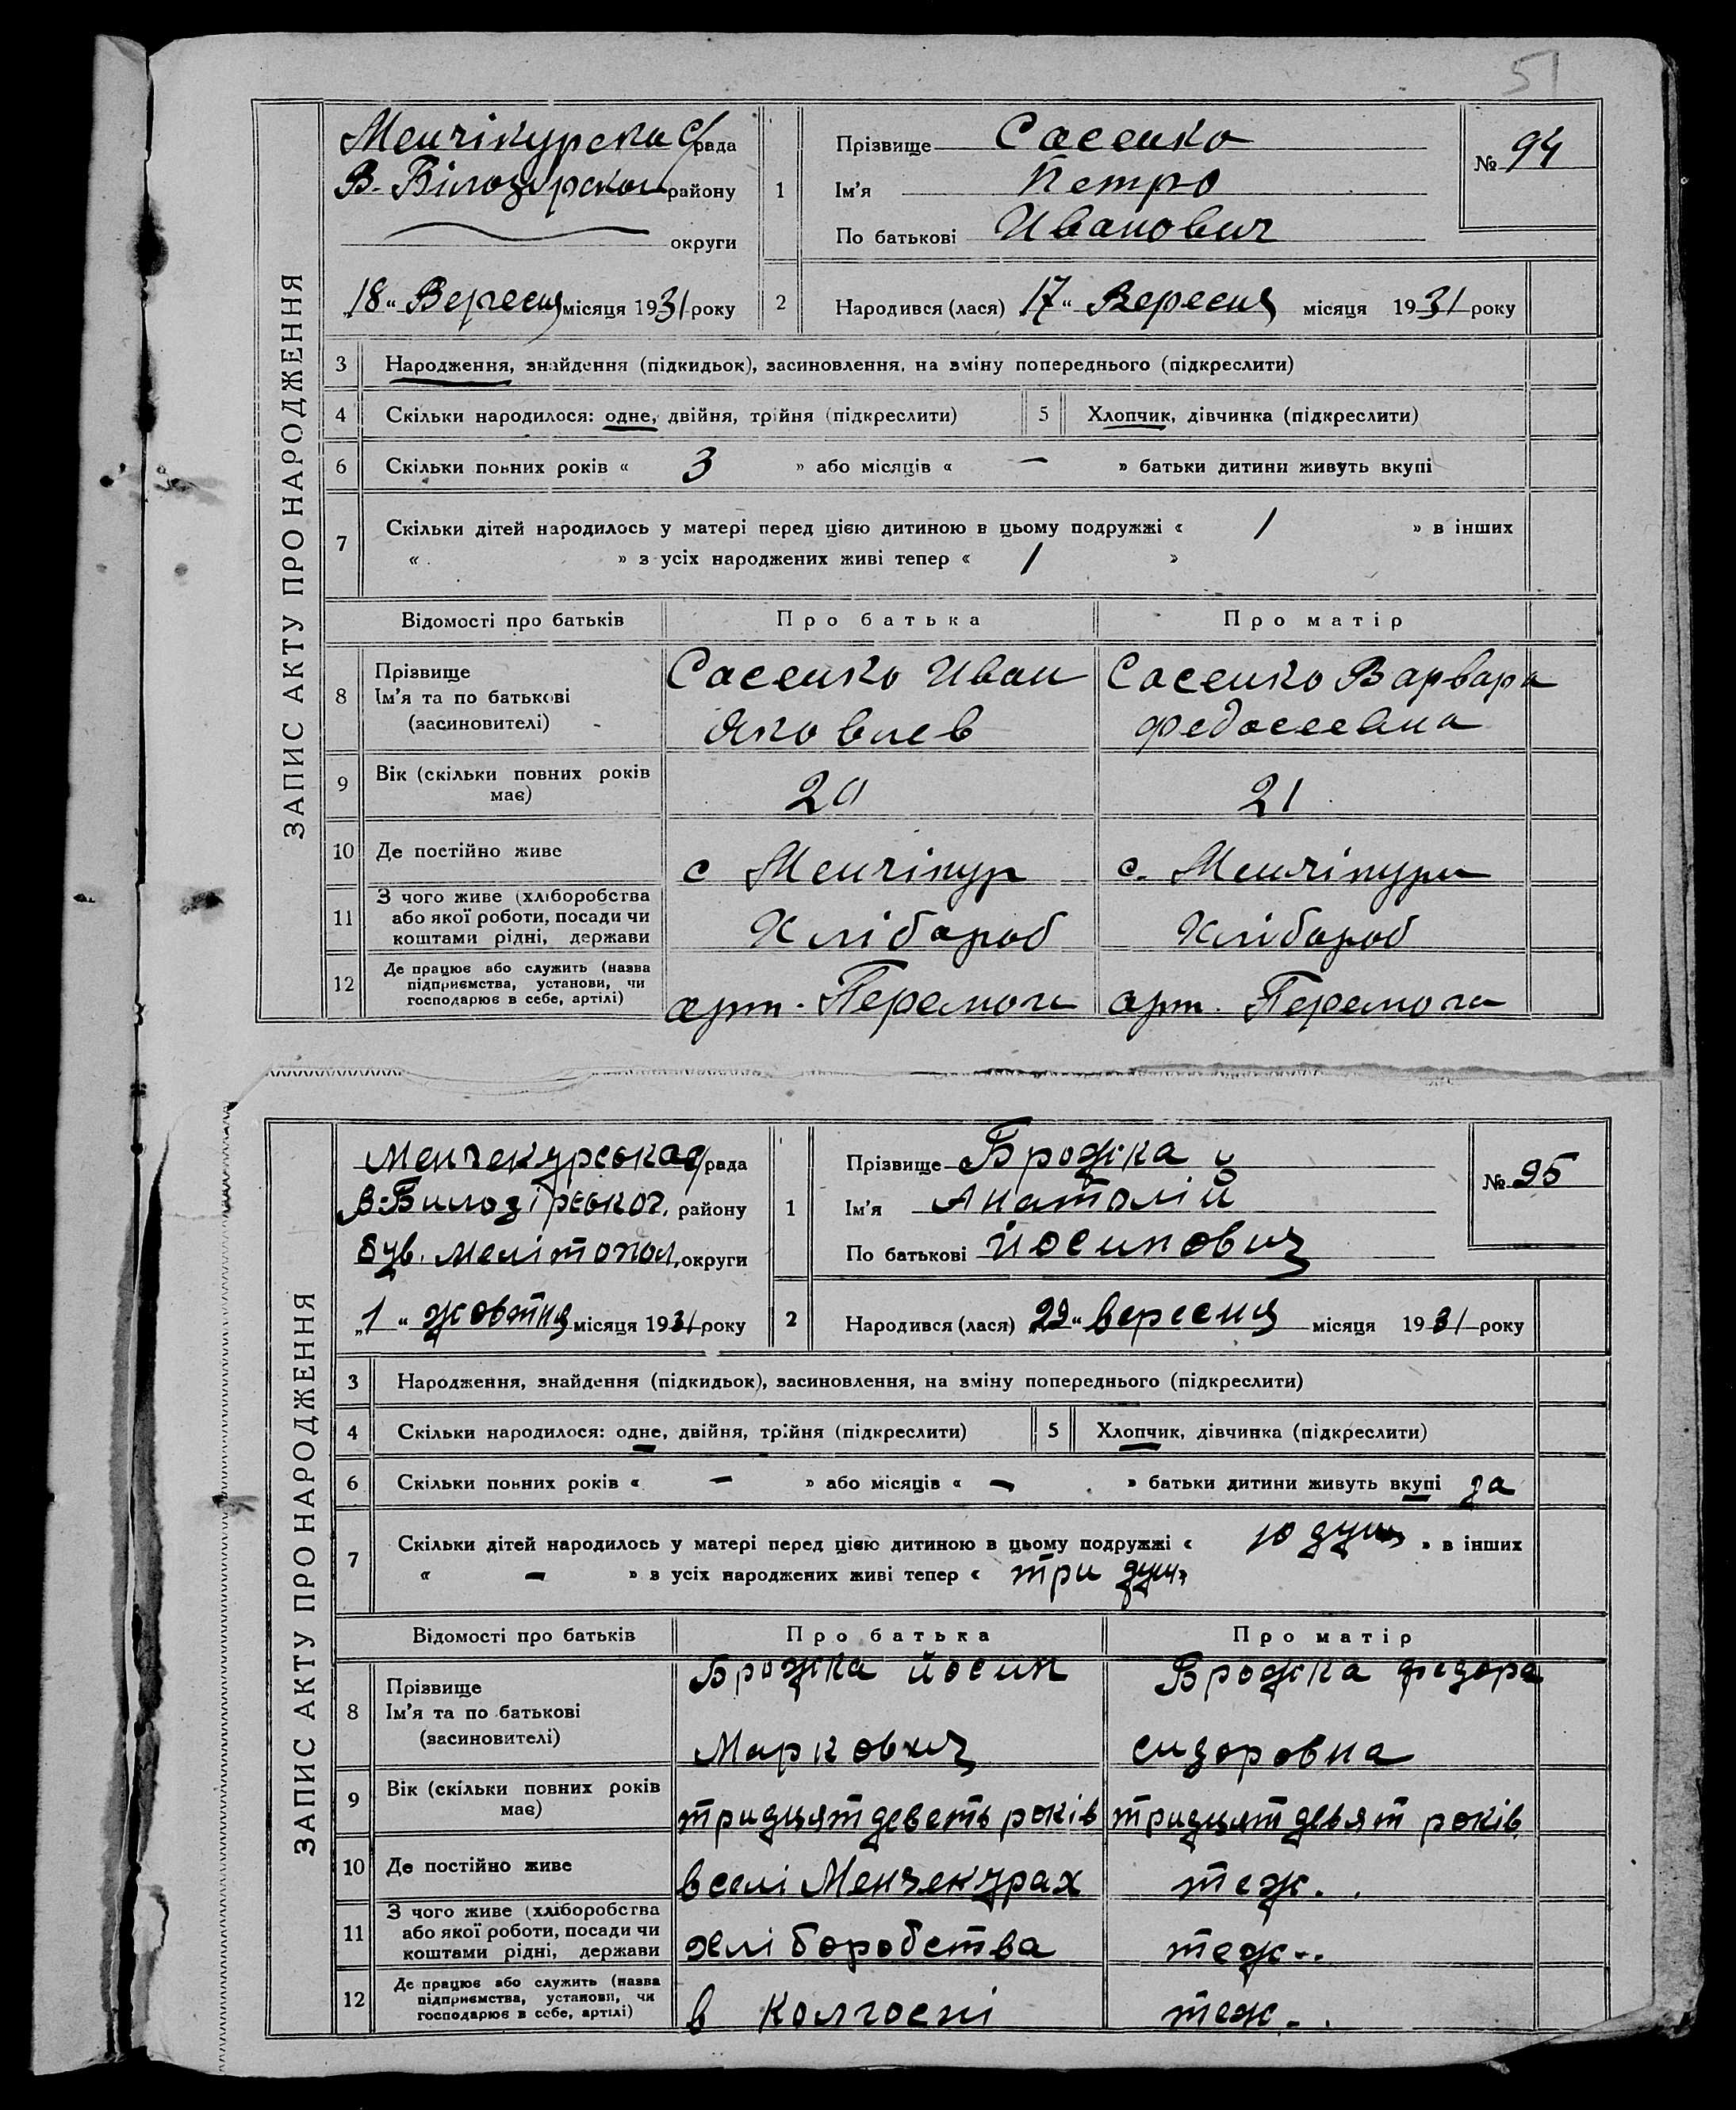 51
ЗАПИС АКТУ ПРО НАРОДЖЕННЯ
Менчікурска с/рада
В-Білозурской району
округи
„18“ Вересня місяця 1931 року
1
Прізвище Сасенко
Ім'я Петро
По батькові Иванович
№ 94
2 Народився (лася) 17“ Вересня місяця 1931 року
3 Народження, знайдення (підкидьок), засиновлення, на зміну попереднього (підкреслити)
4 Скільки народилося: одне, двійня, трійня (підкреслити) 5 Хлопчик, дівчинка (підкреслити)
6 Скільки повних років « 3 » або місяців « — » батьки дитини живуть вкупі
7 Скільки дітей народилось у матері перед цією дитиною в цьому подружжі « 1 » в інших
« » з усіх народжених живі тепер « 1 »
Відомості про батьків Про батька Про матір
8 Прізвище Ім'я та по батькові (засиновителі)
Сасенко Иван Сасенко Варвара
Яковлев Федосеевна
9 Вік (скільки повних років має) 20 21
10 Де постійно живе с Менчікур с. Менчікури
11 З чого живе (хліборобства або якої роботи, посади чи коштами рідні, держави Хлібароб Хлібороб
12 Де працює або служить (назва підприємства, установи, чи господарює в себе, артілі) арт. Перемога арт. Перемога
ЗАПИС АКТУ ПРО НАРОДЖЕННЯ
Менчекурська с/рада
В-Билозірськог. району
був. Мелітопол. округи
„1“ жовтня місяця 1931 року
1
Прізвище Брожка
Ім'я Анатолій
По батькові Йосипович
№ 95
2 Народився (лася) 29“ вересня місяця 1931 року
3 Народження, знайдення (підкидьок), засиновлення, на зміну попереднього (підкреслити)
4 Скільки народилося: одне, двійня, трійня (підкреслити) 5 Хлопчик, дівчинка (підкреслити)
6 Скільки повних років « — » або місяців « — » батьки дитини живуть вкупі да
7 Скільки дітей народилось у матері перед цією дитиною в цьому подружжі « 10 душ » в інших
« — » з усіх народжених живі тепер « три душ»
Відомості про батьків Про батька Про матір
8 Прізвище Ім'я та по батькові (засиновителі)
Брожка Йосип Брожка Федора
Маркович сидоровна
9 Вік (скільки повних років має) тридцят деветь років тридцят девят років
10 Де постійно живе в селі Менчекурах теж.
11 З чого живе (хліборобства або якої роботи, посади чи коштами рідні, держави хліборобства теж..
12 Де працює або служить (назва підприємства, установи, чи господарює в себе, артілі) в колгоспі теж..